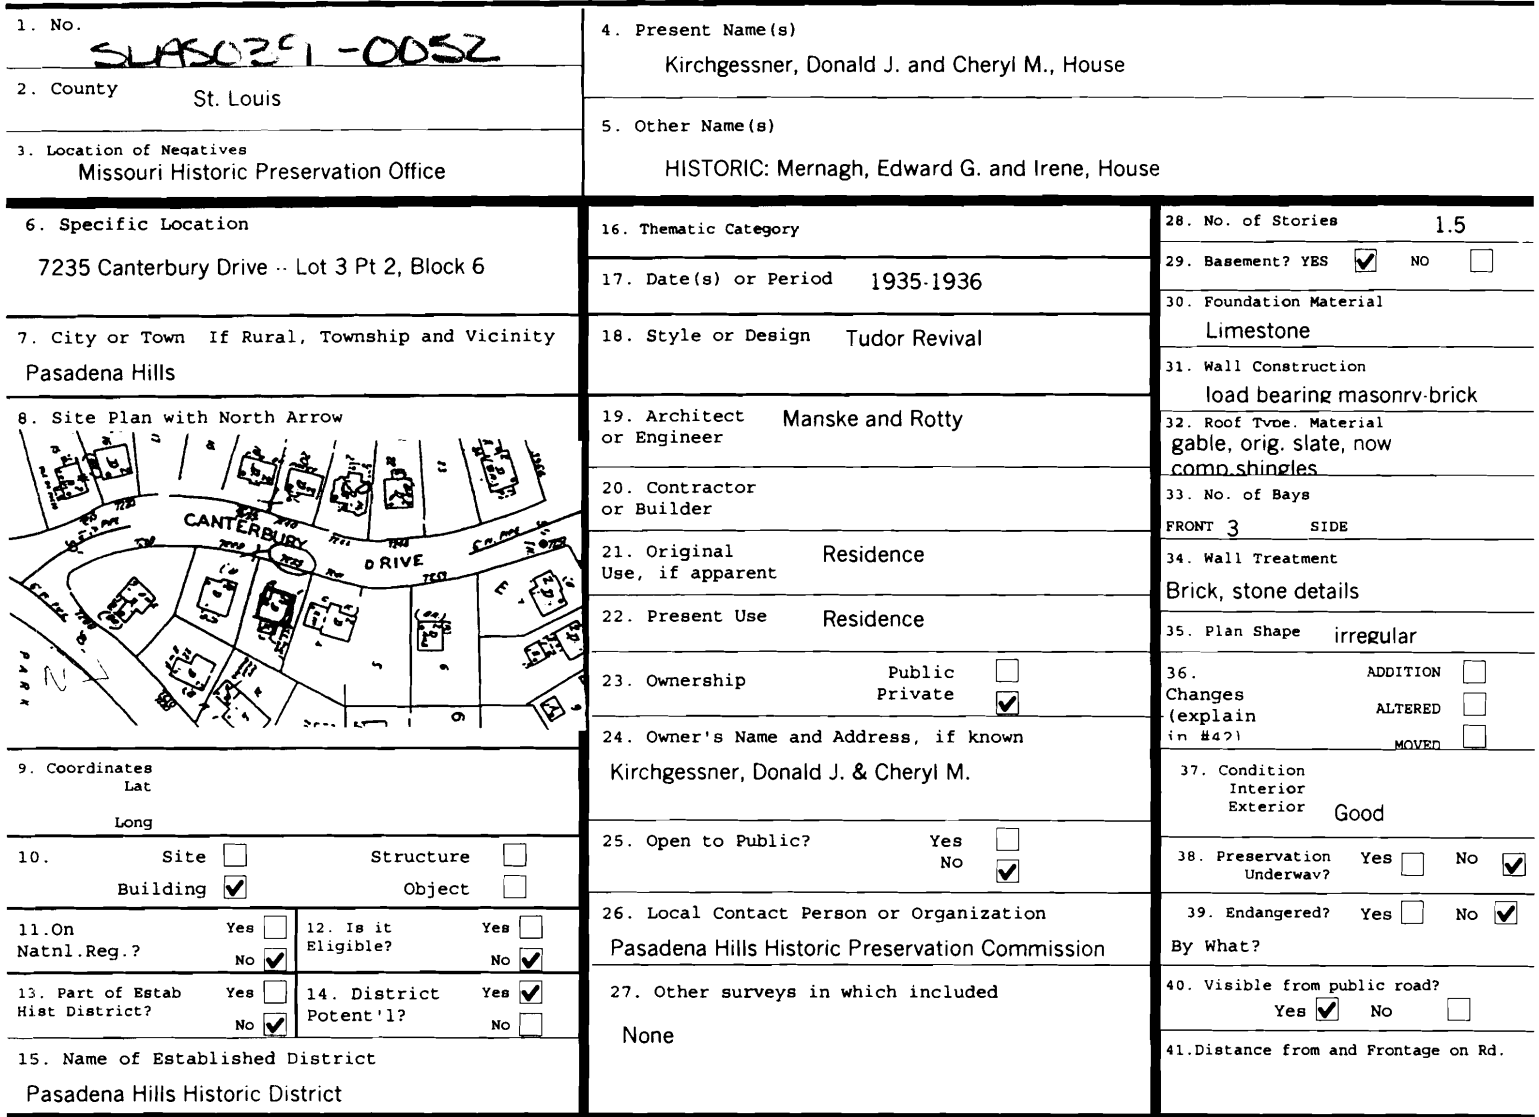 1. No.
SLAS0391-0052
2. County
St. Louis
3. Location of Negatives
Missouri Historic Preservation Office
4. Present Name(s)
Kirchgessner, Donald J. and Cheryl M., House
5. Other Name(s)
HISTORIC: Mernagh, Edward G. and Irene, House
6. Specific Location
7235 Canterbury Drive -- Lot 3 Pt 2, Block 6
7. City or Town If Rural, Township and Vicinity
Pasadena Hills
8. Site Plan with North Arrow
CANTERBURY
DRIVE
PARK
N
9. Coordinates
Lat
Long
10. Site Structure
Building Object
11.On Natnl.Reg.? Yes No
12. Is it Eligible? Yes No
13. Part of Estab Hist District? Yes No
14. District Potent'l? Yes No
15. Name of Established District
Pasadena Hills Historic District
16. Thematic Category
17. Date(s) or Period 1935-1936
18. Style or Design Tudor Revival
19. Architect Manske and Rotty
or Engineer
20. Contractor
or Builder
21. Original Residence
Use, if apparent
22. Present Use Residence
23. Ownership Public
Private
24. Owner's Name and Address, if known
Kirchgessner, Donald J. & Cheryl M.
25. Open to Public? Yes
No
26. Local Contact Person or Organization
Pasadena Hills Historic Preservation Commission
27. Other surveys in which included
None
28. No. of Stories 1.5
29. Basement? YES NO
30. Foundation Material
Limestone
31. Wall Construction
load bearing masonry-brick
32. Roof Type. Material
gable, orig. slate, now
comp.shingles
33. No. of Bays
FRONT 3 SIDE
34. Wall Treatment
Brick, stone details
35. Plan Shape irregular
36. ADDITION
Changes
(explain ALTERED
in #42)
MOVED
37. Condition
Interior
Exterior Good
38. Preservation Yes No
Underway?
39. Endangered? Yes No
By What?
40. Visible from public road?
Yes No
41.Distance from and Frontage on Rd.